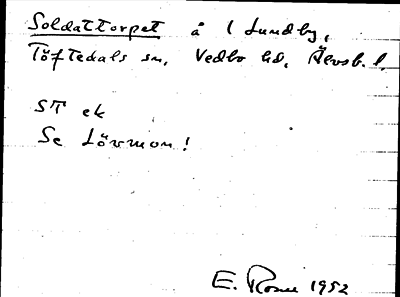 Soldattorpet å 1 Lundby,
Töftedals sn, Vedbo hd, Älvsb. l.
ST ek
Se Lövmon!
E. Rosell 1952